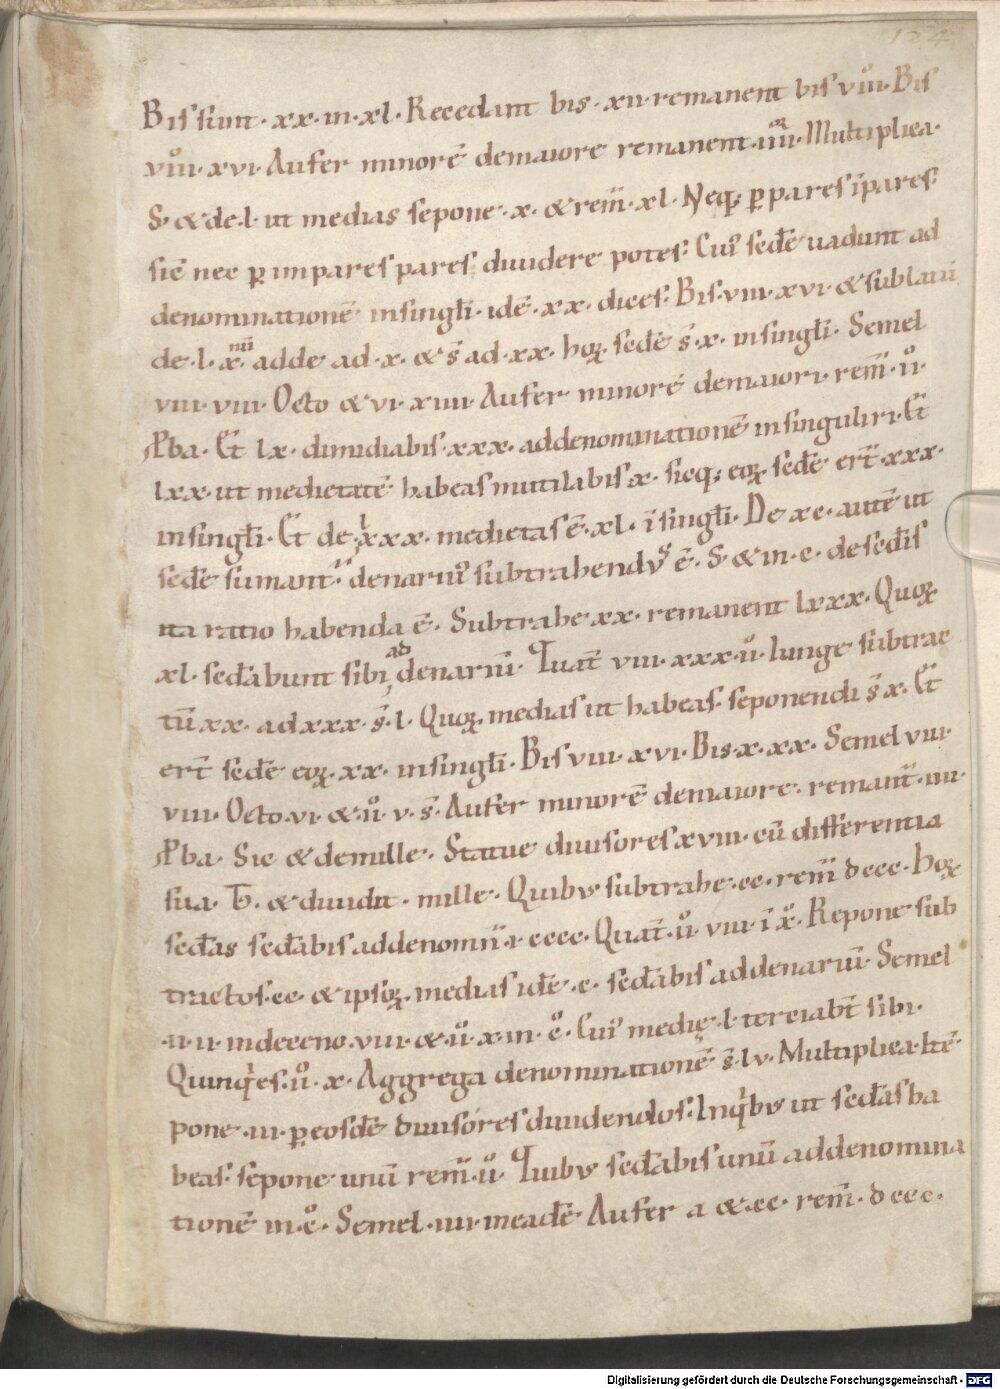 124
Bis sunt· xx· in· xl· Recedant bis· xii· remanent bis viii· Bis
viii· xvi· Aufer minorē demaiore remanent· iiii· Multiplica·
S· & de· l· ut medias sepone· x· & rem̄· xl· Neq; ꝑ pares īpares·
sic̄ nec ꝑ impares pares· diuidere potes· Cui᾿ sedē uadunt ad
denominationē insingl̄i· idē· xx· dices· Bis· viii· xvi· & sublatū
de· l· x· nū adde ad· x· & s̄ ad· xx· hoꝝ sedē s̄· x· insingl̄i· Semel
viii· viii· Octo & vi· xiiii· Aufer minorē demaiori· rem̄· ii·
Ꝓba· Et̄ lx· dimidiabis· xxx· addenominationē insinguliri· Et̄
lxx· ut medietatē habeas mutilabis x· sicq; eoꝝ sedē er̄t· xxx·
insingl̄i· Et̄ de lxxx· medietas ē· xl· ī singl̄i· De xc· autē ut
sedē sumant· denariu᾿ subtrahend᾿ ē· S· & in· c· desedis
ita ratio habenda ē· Subtrahe xx· remanent lxxx· Quoꝝ
xl· sedabunt sibi ad denariū· viii· xxx· u· Iunge subtrac
tū xx· ad xxx· s̄· l· Quoꝝ medias ut habeas· seponendi s̄ x· Et̄
er̄t sedē eoꝝ· xx· insingl̄i· Bis viii· xvi· Bis· x· xx· Semel viii·
viii· Octo· vi· & ii· v· s̄· Aufer minorē demaiore· remant̄· iii·
Ꝓba· Sic & demille· Statue diuisores xviii· cū differentia
sua· & diuidit· mille· Quib᾿ subtrahe· cc· rem̄ dccc· hoꝝ
sedas sedabis addenomin̄· cccc· Quat̄· u̇· viii· ī x· Repone sub
tractos· cc· & ipsoꝝ· medias idē· c· sedabis addenariū· Semel
ii· ii· indeceno· viii· & u̇· x· in· c̊· Cui᾿ medię· l· terciab̄t sibi·
Quinq᾿es· u̇· x· Aggrega denominationē s̄· lv· Multiplica· Itē·
pone· iii· ꝑ eosdē diuisores diuidendos· Inq᾿b᾿ ut sedas ha
beas· sepone unū rem̄· ii· sedabis unū addenomina
tionē in· c̊· Semel· iiii· ineadē Aufer a &· cc· rem̄· dccc·
Digitalisierung gefördert durch die Deutsche Forschungsgemeinschaft - DFG